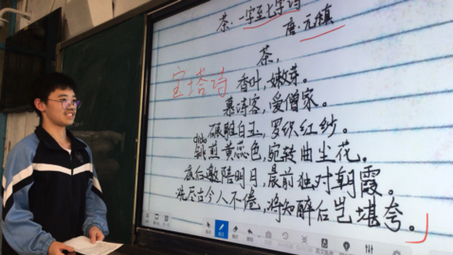 茶·一字至七字诗
唐·元稹
茶，
宝塔诗
香叶，嫩芽。
慕诗客，爱僧家。
碾雕白玉，罗织红纱。
diào
铫煎黄蕊色，宛转曲尘花。
夜后邀陪明月，晨前独对朝霞。
洗尽古今人不倦，将知醉后岂堪夸。